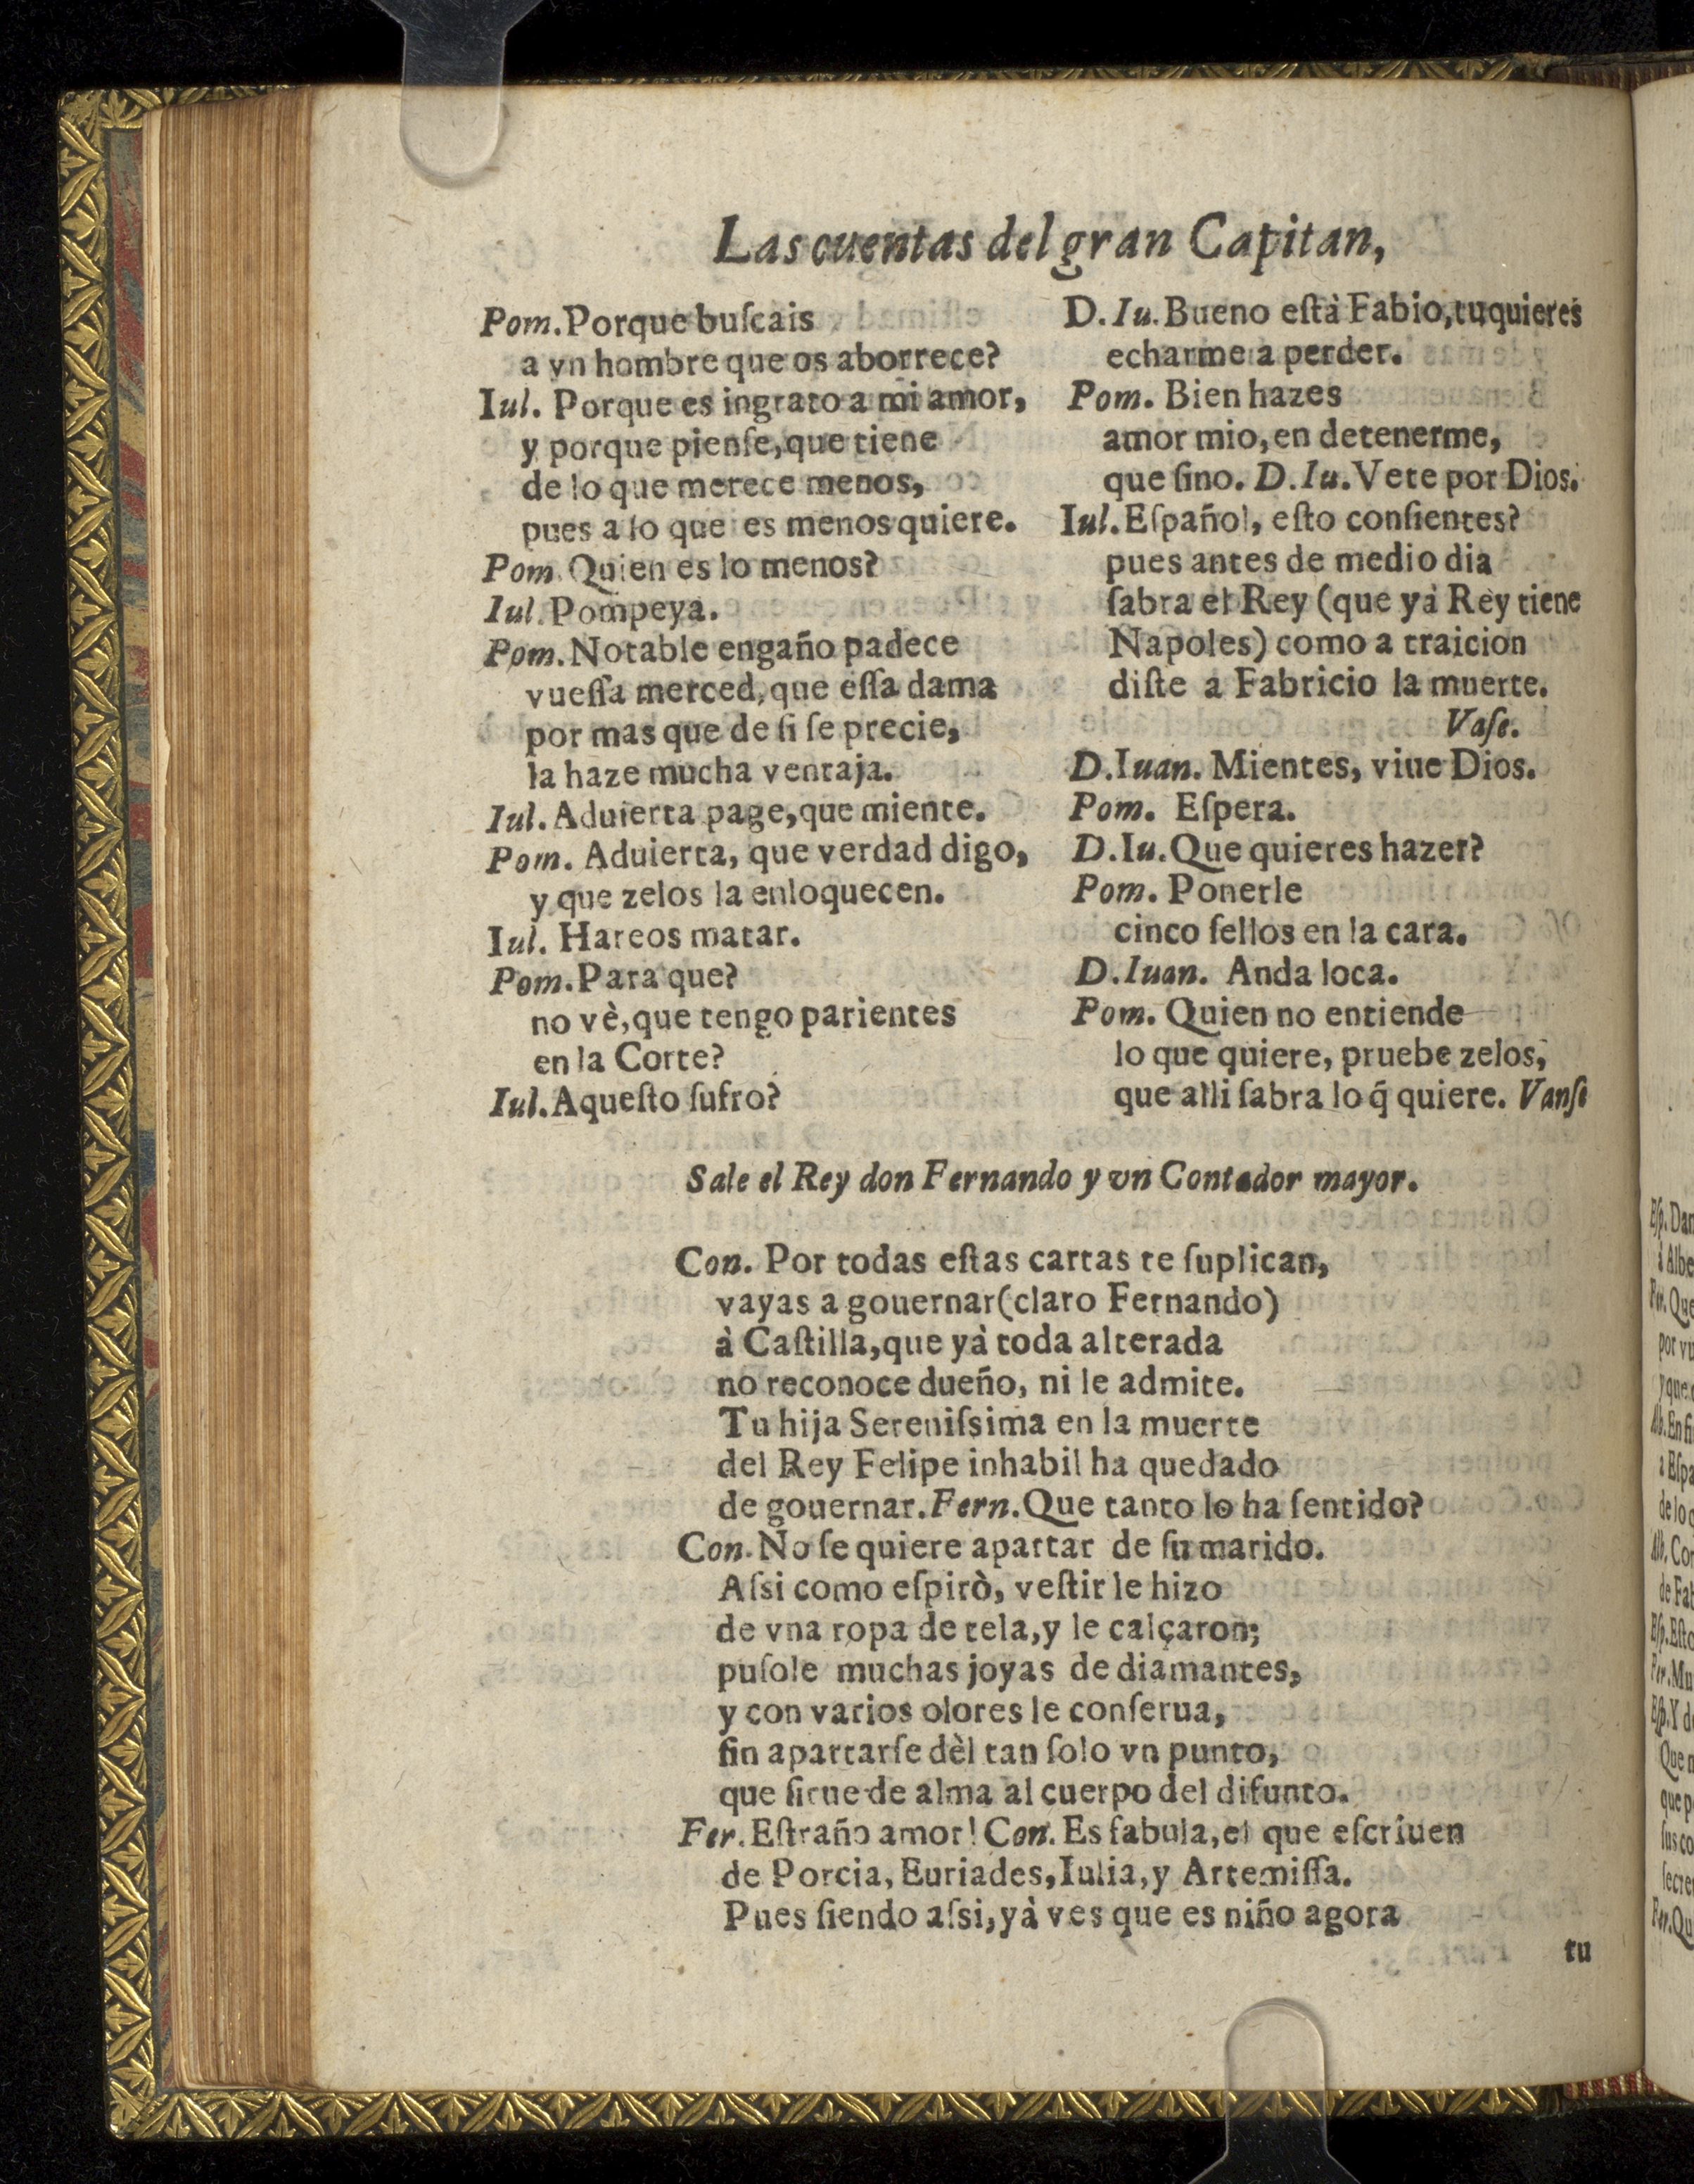 Las cuentas del gran Capitan,
Pom. Porque buſcais
a vn hombre que os aborrece?
Iul. Porque es ingrato a mi amor,
y porque pienſe, que tiene
de lo que merece menos,
pues a lo que es menos quiere.
Pom. Quien es lo menos?
Iul. Pompeya.
Pom. Notable engaño padece
vueſſa merced, que eſſa dama
por mas que de ſi ſe precie,
la haze mucha ventaja.
Iul. Aduierta page, que miente.
Pom. Aduierta, que verdad digo,
y que zelos la enloquecen.
Iul. Hareos matar.
Pom. Para que?
no vè, que tengo parientes
en la Corte?
Iul. Aqueſto ſufro?
D. Iu. Bueno eſtà Fabio, tu quieres
echarme a perder.
Pom. Bien hazes
amor mio, en detenerme,
que ſino. D. Iu. Vete por Dios.
Iul. Eſpañol, eſto conſientes?
pues antes de medio dia
ſabra el Rey (que yà Rey tiene
Napoles) como a traicion
diſte a Fabricio la muerte.
Vaſe.
D. Iuan. Mientes, viue Dios.
Pom. Eſpera.
D. Iu. Que quieres hazer?
Pom. Ponerle
cinco ſellos en la cara.
D. Iuan. Anda loca.
Pom. Quien no entiende
lo que quiere, pruebe zelos,
que alli ſabra lo q̃ quiere. Vanſe
Sale el Rey don Fernando y vn Contador mayor.
Con. Por todas eſtas cartas te ſuplican,
vayas a gouernar (claro Fernando)
à Caſtilla, que yà toda alterada
no reconoce dueño, ni le admite.
Tu hija Sereniſsima en la muerte
del Rey Felipe inhabil ha quedado
de gouernar. Fern. Que tanto lo ha ſentido?
Con. No ſe quiere apartar de ſu marido.
Aſsi como eſpirò, veſtir le hizo
de vna ropa de tela, y le calçaron;
puſole muchas joyas de diamantes,
y con varios olores le conſerua,
ſin apartarſe dèl tan ſolo vn punto,
que ſirue de alma al cuerpo del difunto.
Fer. Eſtraño amor! Con. Es fabula, el que eſcriuen
de Porcia, Euriades, Iulia, y Artemiſſa.
Pues ſiendo aſsi, yà ves que es niño agora
tu